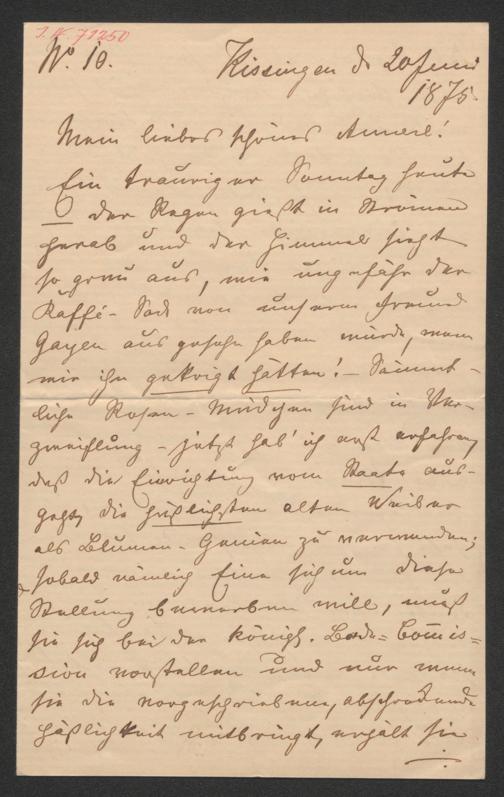 I. N. 79250
No. 10.
Kissingen d 20 Juni
1875.
Mein liebes schönes Annerl!
Ein trauriger Sonntag heute
der Regen gießt in Strömen
herab und der Himmel sieht
so grau aus, wie ungefähr der
Kaffé-Sack von unserm Freund
ausgesehn haben würde, wenn
wir ihn gekrigt hätten! – Sämmt-
liche Rosen-Mädchen sind in Ver-
zweiflung – jetzt hab' ich erst erfahren,
daß die Einrichtung vom Staate aus-
geht, die häßlichsten alten Weiber
als Blumen-Genien zu verwenden;
sobald nämlich Eine sich um diese
Stellung bewerben will, muß
sie sich bei der königl. Bade-Comis-
sion vorstellen und nur wenn
sie die vorgeschriebene, abschreckende
Häßlichkeit mitbringt, erhält sie